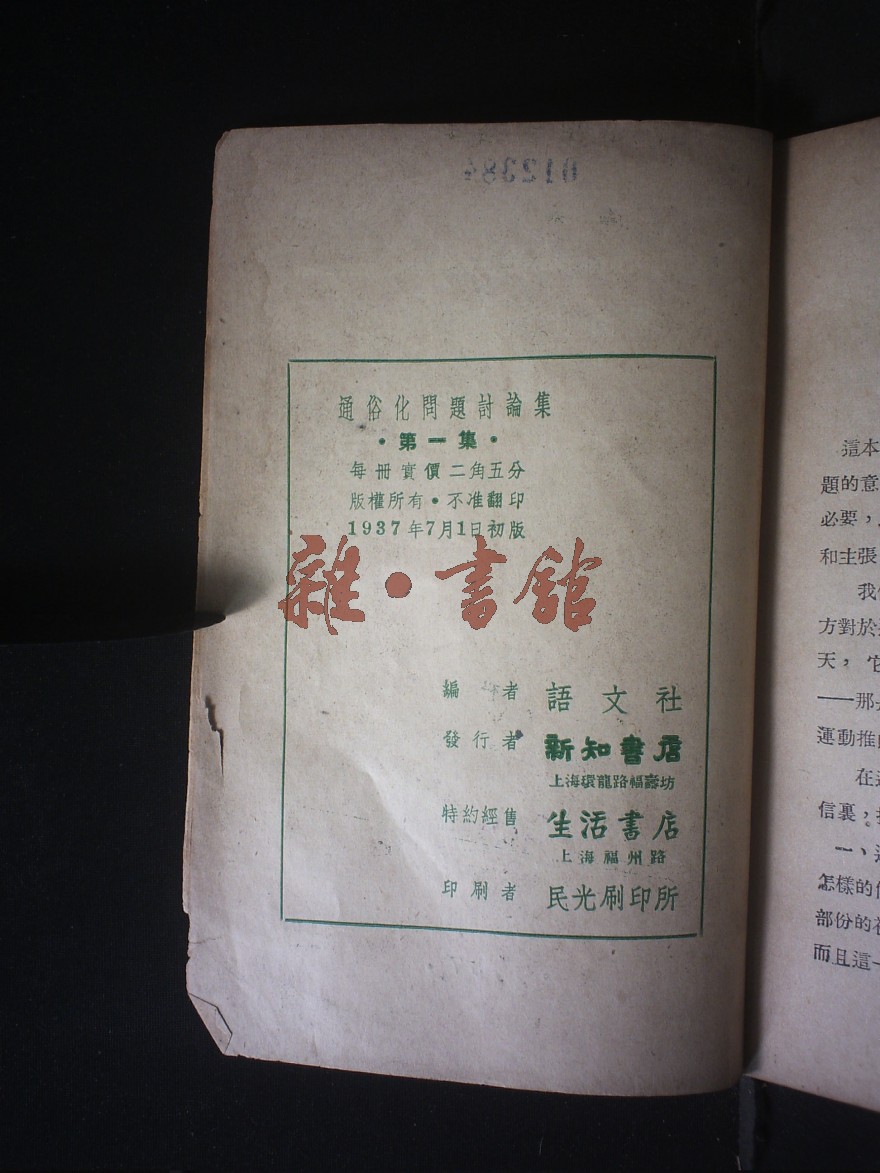 012384
通俗化問題討論集
·第一集·
每冊實價二角五分
版權所有·不准翻印
1937年7月1日初版
雜·書館
編 者 語文社
發行者 新知書店
上海環龍路福壽坊
特約經售 生活書店
上海福州路
印刷者 民光刷印所
這本
題的意
必要，
和主張
我
方對於
天，它
——那
運動推
在
信裏，
一、
怎樣的
部份的
而且這一